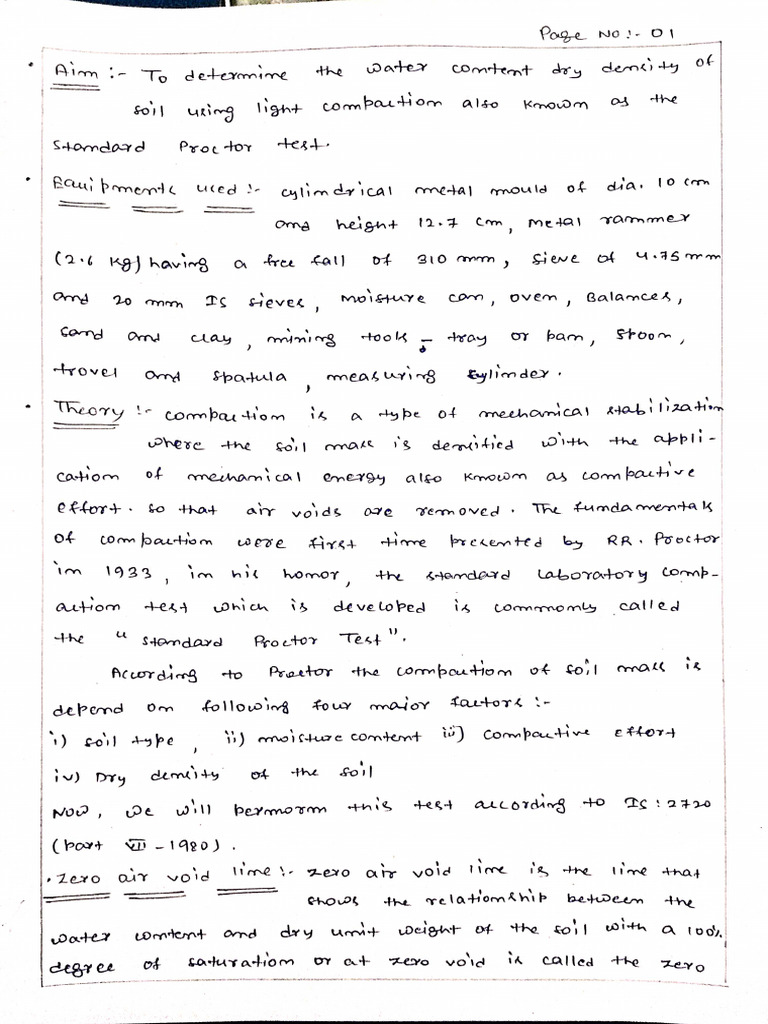 Page No:- 01
Aim :- To determine the water content dry density of
soil using light compaction also known as the
standard Proctor test.
Equipments used :- cylindrical metal mould of dia. 10 cm
and height 12.7 cm, metal rammer
(2.6 kg) having a free fall of 310 mm, sieve of 4.75 mm
and 20 mm IS sieves, moisture can, oven, Balances,
sand and clay, mining tools - tray or pan, spoon,
trovel and spatula, measuring cylinder.
Theory :- compaction is a type of mechanical stabilization
where the soil mass is densified with the appli-
cation of mechanical energy also known as compactive
effort. so that air voids are removed. The fundamentals
of compaction were first time presented by RR. Proctor
in 1933, in his honor, the standard laboratory comp-
action test which is developed is commonly called
the "standard Proctor Test".
According to Proctor the compaction of soil mass is
depend on following four major factors :-
i) soil type, ii) moisture content iii) compactive effort
iv) Dry density of the soil
Now, we will permorm this test according to IS: 2720
(part VII - 1980).
. Zero air void line :- zero air void line is the line that
shows the relationship between the
water content and dry unit weight of the soil with a 100%
degree of saturation or at zero void is called the zero